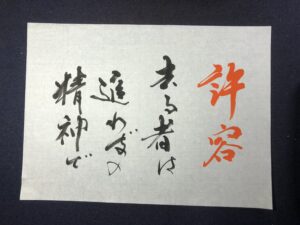 許容
去る者は
追わずの
精神で